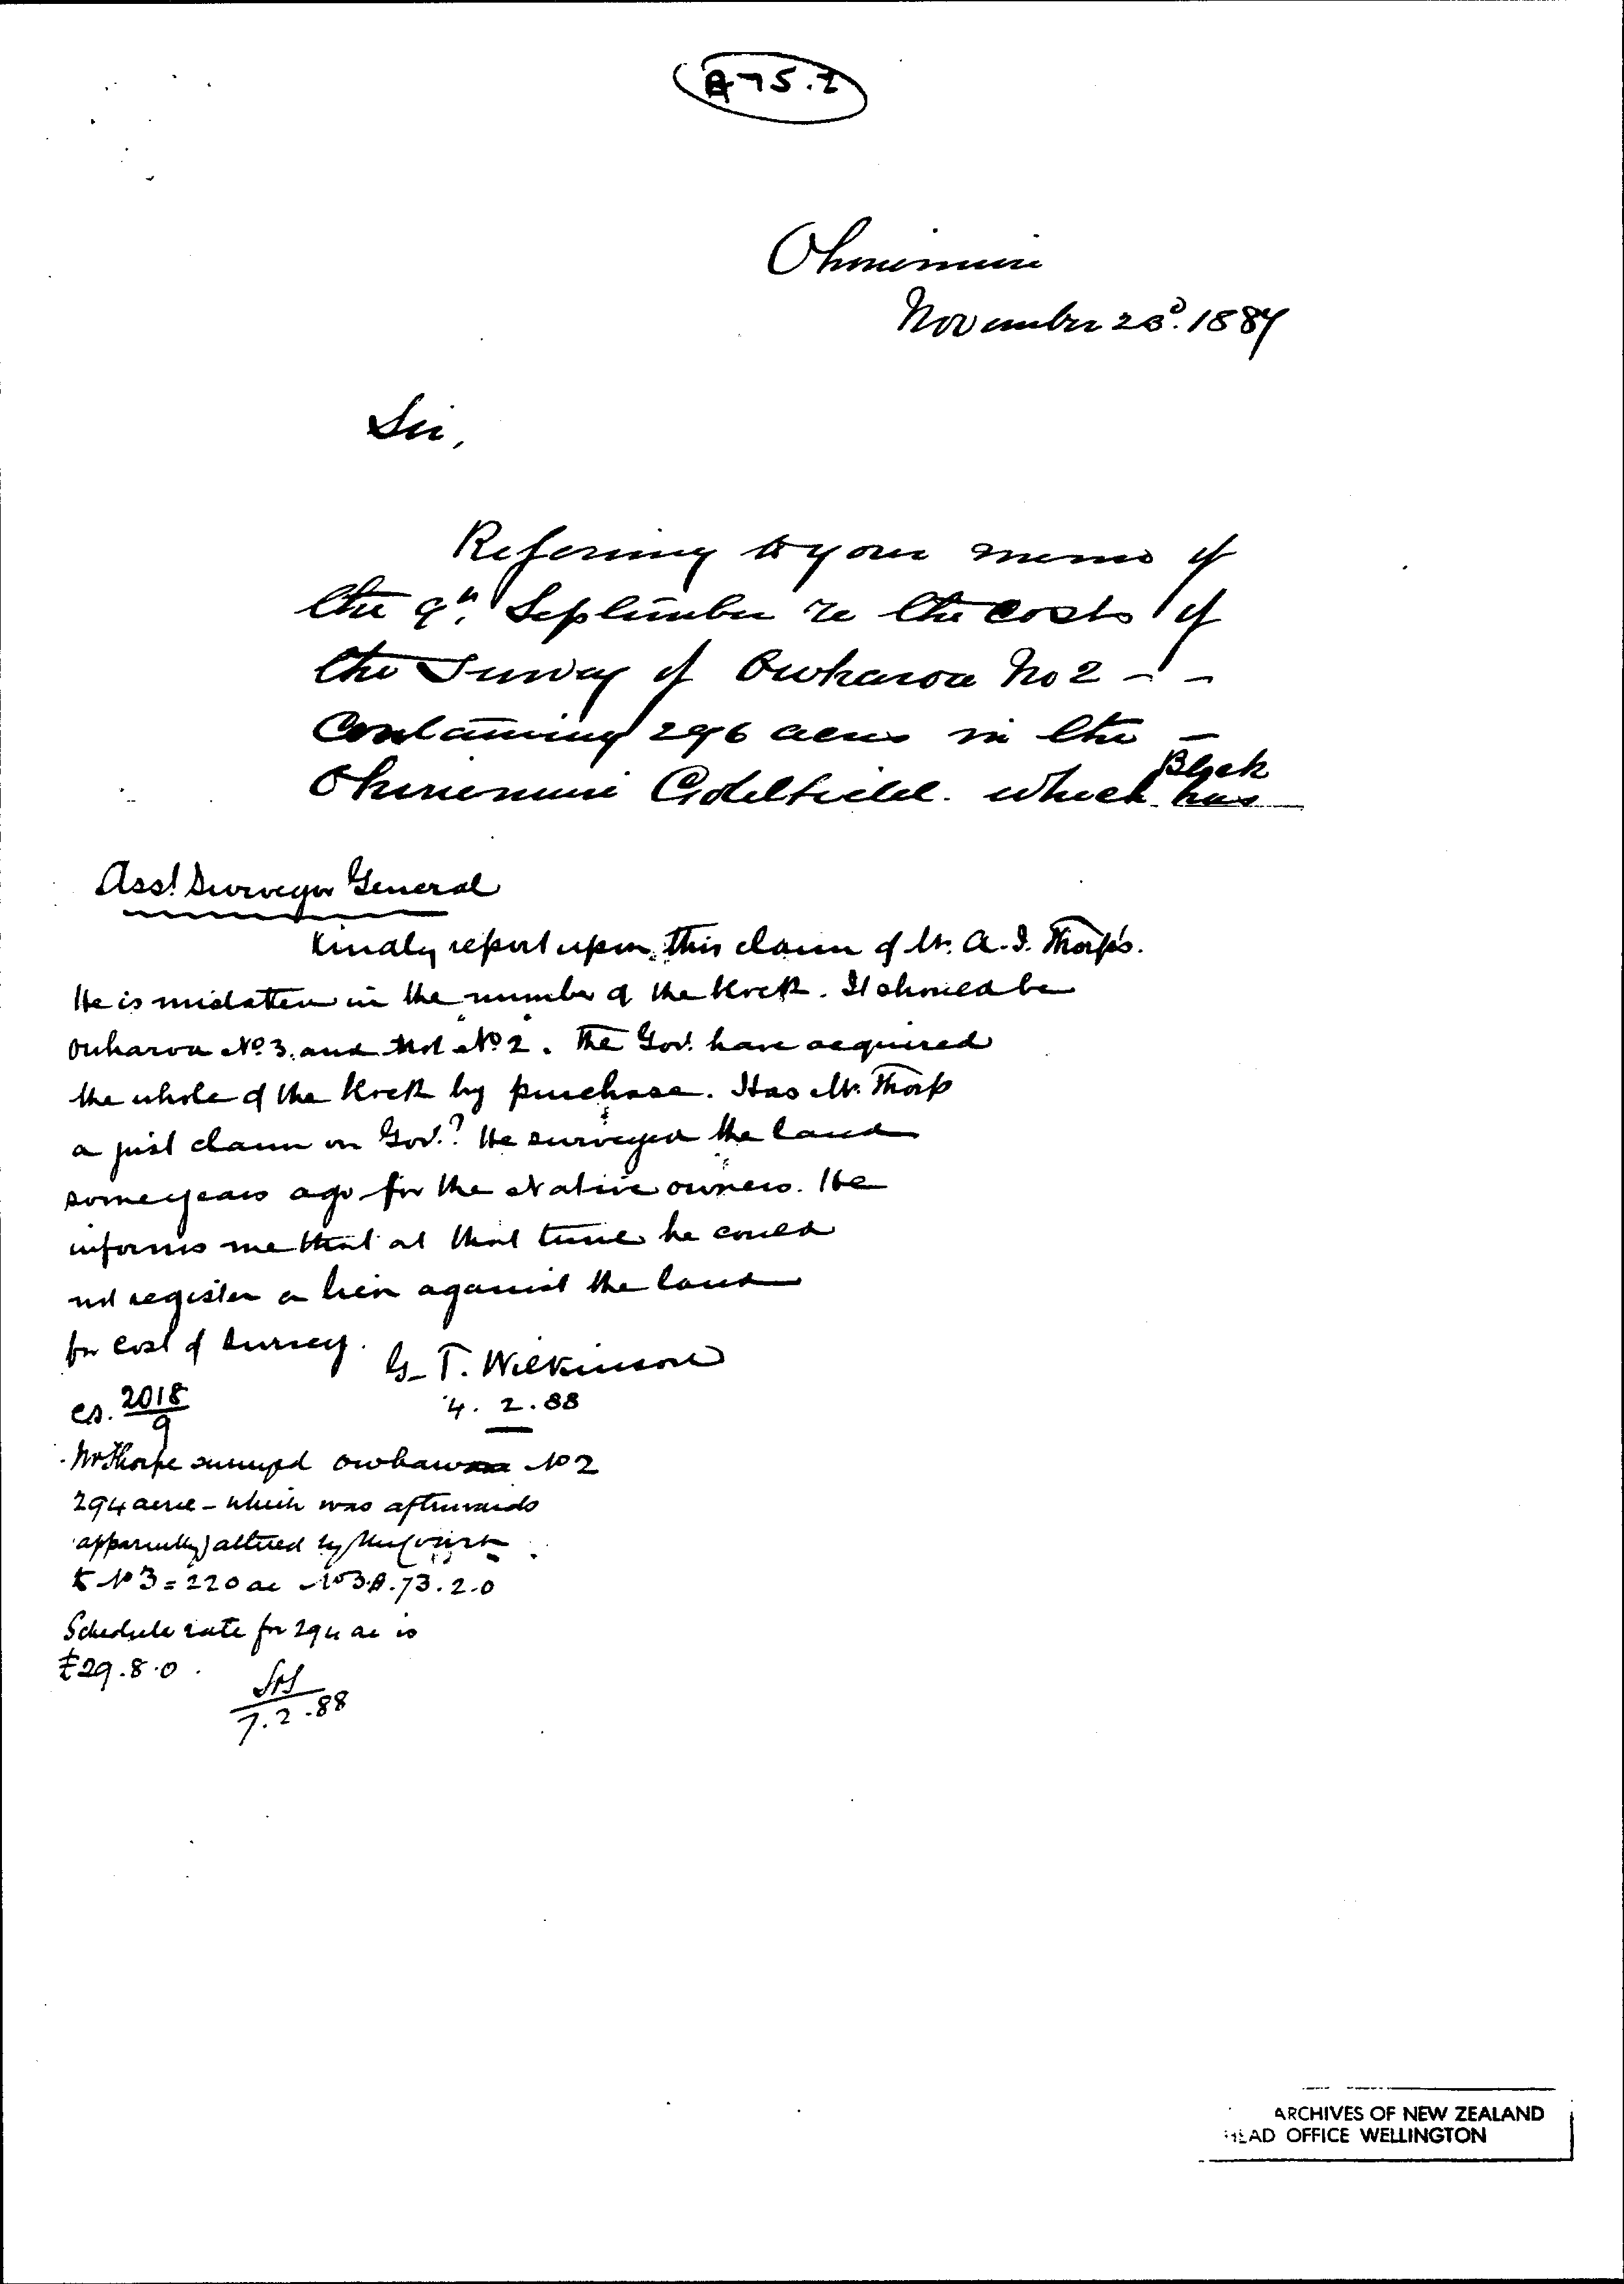 A75.2
Ohinemuri
November 23d. 1887
Sir,
Referring to your memo of
the 9th. September re the costs of
the Survey of Owharoa No 2 - -
Containing 296 acres in the -
Ohinemuri Goldfield. which Block has
Asst Surveyor General
Kindly report upon this claim of Mr. A. J. Thorp's.
He is mistaken in the number of the block. It should be
Owharoa No. 3. and not "No 2". The Govt. have acquired
the whole of the block by purchase. Has Mr. Thorp
a just claim on Govt.? He surveyed the land
some years ago for the Native owners. He
informs me that at that time he could
not register a lien against the land
for cost of survey.
G. T. Wilkinson
4. 2. 88
2018/9
Mr Thorpe surveyed Owharoa No 2
294 acres - which was afterwards
apparently altered by the Court
to No 3 = 220 ac No 3A. 73. 2. 0
Schedule rate for 294 ac is
£29. 8. 0.
7. 2. 88
ARCHIVES OF NEW ZEALAND
HEAD OFFICE WELLINGTON